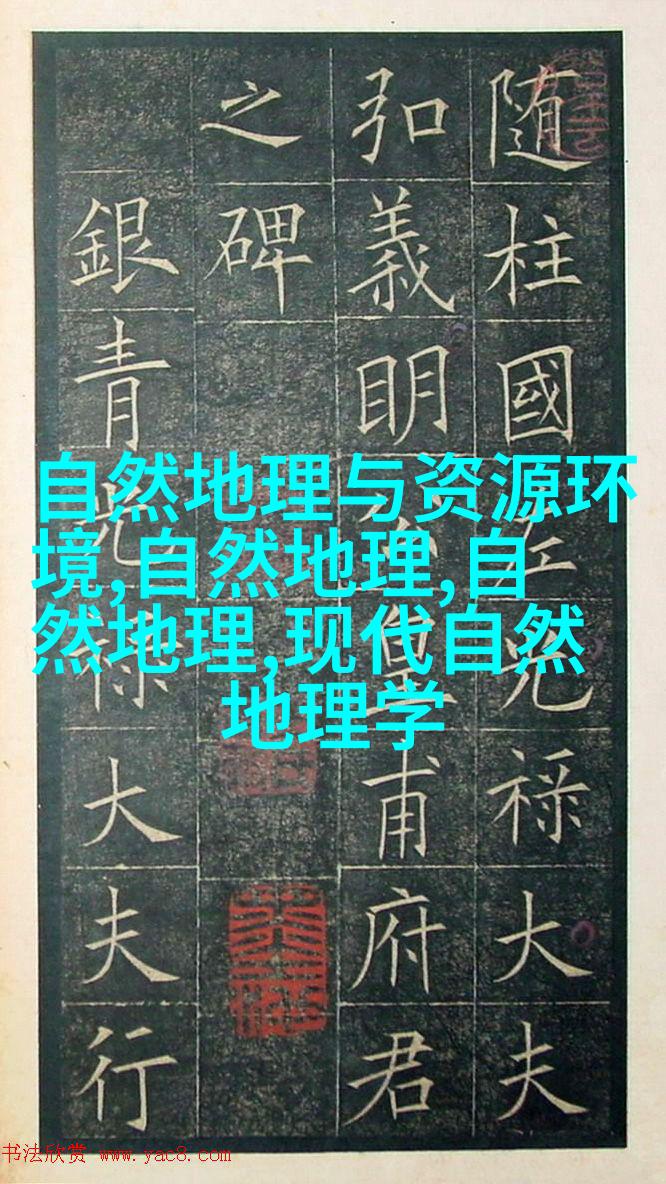 随柱國左光禄大夫
弘義明公皇甫府君
之碑
銀青光禄大夫行
自然地理与资源环
境,自然地理,自
然地理,现代自然
地理学
书法欣赏 www.yac8.com